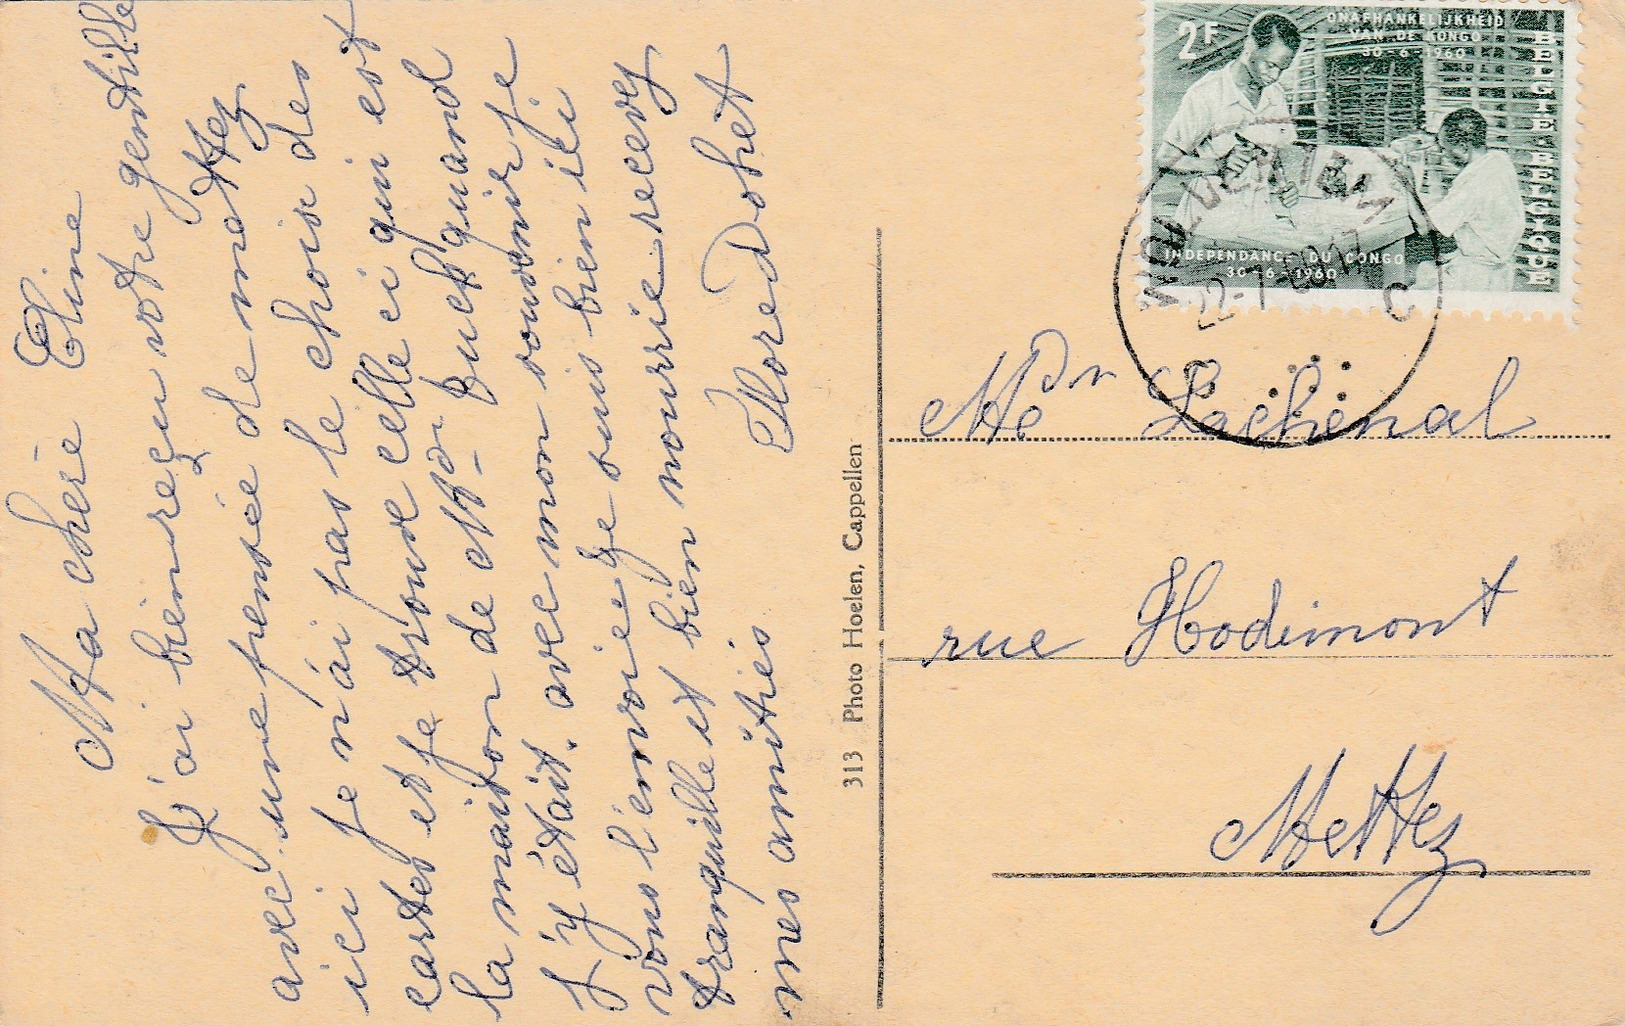 Ma chère Eline
J'ai bien reçu votre gentille
avec une pensée de mettez
ici je n'ai pas le choix des
cartes et je trouve celle ci qui est
la maison de Puck quand
j'y était. avec mon souvenir je
vous l'envoie je suis bien ici
tranquille et bien nourrie recevez
mes amitiés Flore Dohet
313 Photo Hoelen, Cappellen
2F
ONAFHANKELIJKHEID
VAN DE KONGO
30-6-1960
BELGIE BELGIQUE
INDEPENDANCE DU CONGO
30-6-1960
WOLUWE
22-7- 17
C
Lechenal
rue Hodimont
Mettez